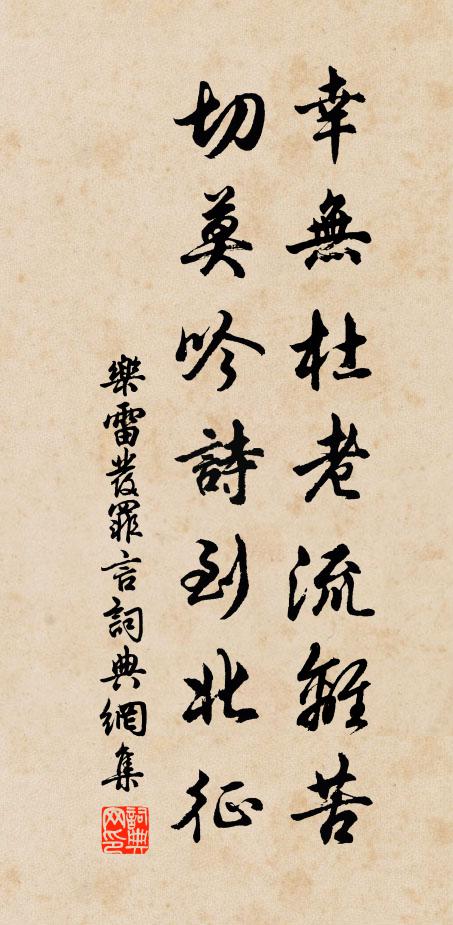 幸無杜老流離苦
切莫吟詩到北征
樂雷發罪言詞典網集
詞典网印